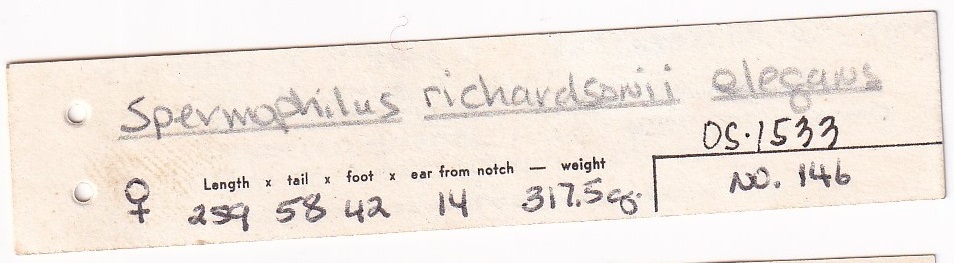 Spermophilus richardsonii elegans
OS.1533
Length x tail x foot x ear from notch — weight
♀ 259 58 42 14 317.5g.
NO. 146